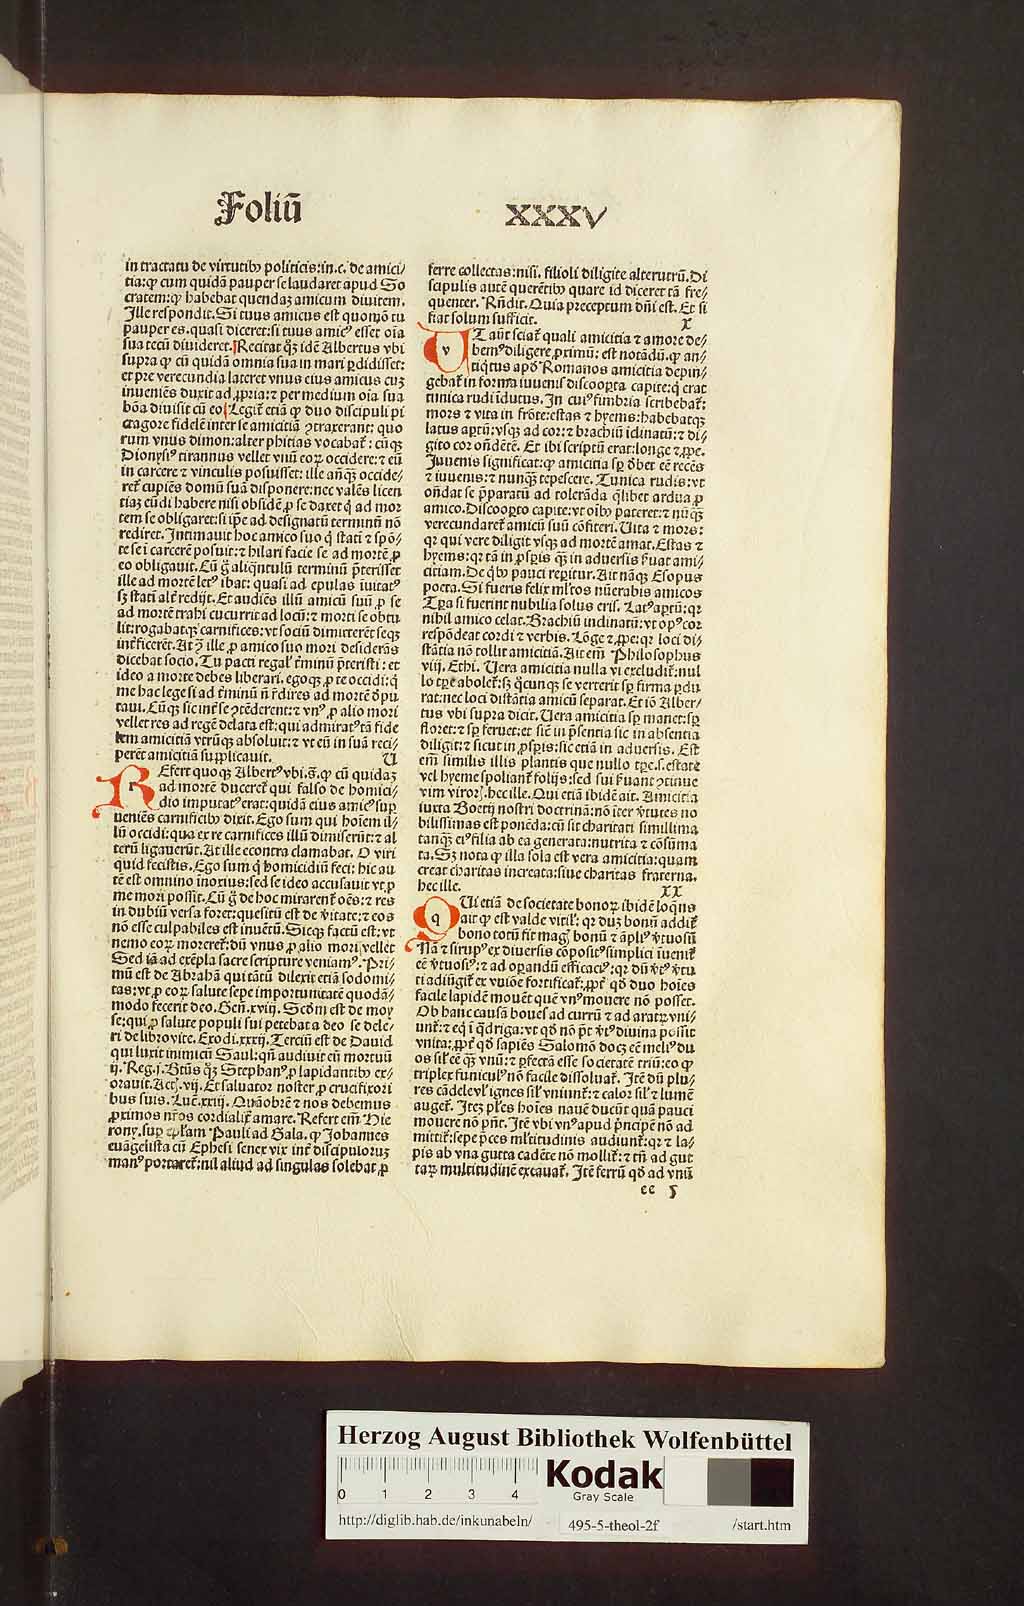 Foliū XXXV
in tractatu de virtutibꝫ politicis:in.c. de amici/
tia:ꝙ cum quidā pauper se laudaret apud So
cratem:ꝙ habebat quendaꝫ amicum diuitem.
Ille respondit. Si tuus amicus est quomō tu
pauper es. quasi diceret:si tuus amicꝰ esset oīa
sua tecū diuideret. Recitat qꝫ idē Albertus vbi
supra ꝙ cū quidā omnia sua in mari ꝑdidisset:
et pre verecundia lateret vnus eius amicus euꝫ
inueniēs duxit ad ꝓpria:⁊ per medium oīa sua
bōa diuisit cū eo Legit̄ etiā ꝙ duo discipuli pi
ctagore fidelē inter se amicitiā ꝯtraxerant: quo
rum vnus dimon:alter phitias vocabat̄: cūqꝫ
Dionysiꝰ tirannus vellet vnū eoꝝ occidere:⁊ eū
in carcere ⁊ vinculis posuisset: ille an̄qꝫ occide/
ret̄ cupiēs domū suā disponere:nec valēs licen
tiaꝫ eūdi habere nisi obsidē ꝓ se daret q̇ ad mor
tem se obligaret:si ip̄e ad designatū terminū nō
rediret. Intimauit hoc amico suo q̇ stati ⁊ spō/
te se ī carcerē posuit:⁊ hilari facie se ad mortē ꝓ
eo obligauit. Cū g̊ aliqn̄tulū terminū p̄terisset
ille ad mortē letꝰ ibat: quasi ad epulas īuitatꝰ
sꝫ stati alt̄ redijt. Et audiēs illū amicū suū ꝓ se
ad mortē trahi cucurrit ad locū:⁊ morti se obtu
lit:rogabatqꝫ carnifices:vt sociū dimitterēt seqꝫ
int̄ficerēt. At ꝯ̄ ille ꝓ amico suo mori desiderās
dicebat socio. Tu pacti regal' t̄minū p̄teristi: et
ideo a morte debes liberari. egoqꝫ ꝓ te occidi:q̇
me hac lege si ad t̄minū n̄ r̄dires ad mortē d̄pu
taui. Cūqꝫ sic int̄ se ꝯtēderent:⁊ vnꝰ ꝓ alio mori
vellet res ad regē delata est:qui admiratꝰ tā fide
lem amicitiā vtrūqꝫ absoluit:⁊ vt eū in suā reci/
perēt amicitiā supplicauit. U
REfert quoqꝫ Albertꝰ vbi.s̄. ꝙ cū quidaꝫ
ad mortē duceret̄ qui falso de homici/
dio imputatꝰ erat:quidā eius amicꝰ suꝑ
ueniēs carnificibꝫ dixit. Ego sum qui hoīem il/
lū occidi:qua ex re carnifices illū dimiserūt:⁊ al
terū ligauerūt. At ille econtra clamabat. O viri
quid fecistis. Ego sum q̇ homicidiū feci: hic au
tē est omnino inoxius:sed se ideo accusauit vt ꝓ
me mori possit. Cū g̊ de hoc mirarent̄ oēs:⁊ res
in dubiū versa foret:quesitū est de v̄itate:⁊ eos
nō esse culpabiles est inuētū. Sicqꝫ factū est:vt
nemo eoꝝ moreret̄:dū vnus ꝓ alio mori vellet
Sed iā ad exēpla sacre scripture veniamꝰ. Pri/
mū est de Abrahā qui tātū dilexit etiā sodomi/
tas:vt ꝓ eoꝝ salute sepe importunitatē quodā/
modo fecerit deo. Gen̄.xviij. Scd̄m est de moy
se:qui ꝓ salute populi sui petebat a deo se dele/
ri de libro vite. Exodi.xxxij. Terciū est de Dauid
qui luxit inimicū Saul:qn̄ audiuit eū mortuū
ij. Reg.j. Btūs qꝫ Stephanꝰ ꝓ lapidantibꝫ ex/
orauit. Act.vij. Et saluator noster ꝓ crucifixori
bus suis. Lucē.xxiij. Quāobrē ⁊ nos debemus
ꝓximos nr̄os cordialit̄ amare. Refert em̄ Hie
rony.suꝑ ep̄lam Pauli ad Gala. ꝙ Johannes
euāgelista cū Ephesi senex vix int̄ discipuloruꝫ
manꝰ portaret̄:nil aliud ad singulas solebat ꝓ
ferre collectas:nisi. filioli diligite alterutrū. Di
scipulis autē querētibꝫ quare id diceret tā fre/
quenter. Rn̄dit. Quia preceptum dn̄i est. Et si
fiat solum sufficit. X
UT aūt sciat̄ quali amicitia ⁊ amore de/
bemꝰ diligere ꝓximū: est notādū.ꝙ an/
tiqͥtus apō Romanos amicitia depin/
gebat̄ in forma iuuenis discoopta capite:q̇ erat
tunica rudi īdutus. In cuiꝰ fimbria scribebat̄:
mors ⁊ vita in frōte:estas ⁊ hyems:habebatqꝫ
latus aꝑtū:vsqꝫ ad cor:⁊ brachiū iclinatū:⁊ di/
gito cor on̄dētē. Et ibi scriptū erat:longe ⁊ ꝓpe.
Juuenis significat:ꝙ amicitia sꝑ d̄bet eē recēs
⁊ iuuenis: ⁊ nunqꝫ tepescere. Tunica rudis:vt
on̄dat se p̄paratū ad tolerāda q̄libet ardua ꝓ
amico. Discoopto capite:vt oībꝫ pateret:⁊ nū̄qꝫ
verecundaret̄ amicū suū cōfiteri. Vita ⁊ mors:
qꝛ qui vere diligit vsqꝫ ad mortē amat. Estas ⁊
hyems:qꝛ tā in ꝓspis qꝫ in aduersis s̄uat ami/
citiam. De qͥbꝫ pauci reꝑitur. Ait nāqꝫ Esopus
poeta. Si fueris felix ml'tos nūerabis amicos
Tꝑa si fuerint nubilia solus eris. Latꝰ aꝑtū:qꝛ
nihil amico celat. Brachiū inclinatū:vt opꝰ cor
respōdeat cordi ⁊ verbis. Lōge ⁊ ꝓpe:qꝛ loci di/
stātia nō tollit amicitiā. Ait em̄ Philosophus
viij. Ethi. Vera amicitia nulla vi excludit̄:nul
lo tꝑe abolet̄:sꝫ q̄cunqꝫ se verterit sꝑ firma ꝑdu
rat:nec loci distātia amicū separat. Et iō Alber/
tus vbi supra dicit. Vera amicitia sꝑ manet:sꝑ
floret:⁊ sꝑ feruet:et sic̄ in p̄sentia sic in absentia
diligit:⁊ sicut in ꝓspis:sic etiā in aduersis. Est
em̄ similis illis plantis que nullo tꝑe.s.estate
vel hyeme spoliant̄ folijs:sed sui s̄uant ꝯtinue
vim viroꝝ.hec ille. Qui etiā ibidē ait. Amicitia
iuxta Boetij nostri doctrinā:nō iter v̄tutes no
bilissimas est ponēda:cū sit charitati simillima
tanqꝫ eiꝰ filia ab ea generata:nutrita ⁊ cōsuma
ta. Sꝫ nota ꝙ illa sola est vera amicitia:quam
creat charitas increata:siue charitas fraterna.
hec ille. XX
QUi etiā de societate bonoꝝ ibidē loq̄ns
ait ꝙ est valde vtilꝭ: qꝛ duꝫ bonū addit̄
bono totū fit magꝭ bonū ⁊ āpliꝰ v̄tuosū
Nā ⁊ sirupꝰ ex diuersis cōpositꝰ simplici iuenit̄
eē v̄tuosꝰ:⁊ ad oꝑandū efficaciꝰ:qꝛ dū v̄tꝰ v̄tu
ti adiūgit̄ ex vnióe fortificat̄:ꝓpt̄ qd̄ duo hoīes
facile lapidē mouēt quē vnꝰ mouere nō posset.
Ob hanc causā boues ad currū ⁊ ad aratꝝ vni/
unt̄:⁊ eq̇ ī q̄driga:vt qd̄ nō p̄t v̄tꝰ diuina possit
vnita:ꝓpt̄ qd̄ sapiēs Salomō docꝫ eē meliꝰ du
os sil' eē qꝫ vnū:⁊ ꝑfectā esse societatē triū:eo ꝙ
triplex funiculꝰ nō facile dissoluat̄. Itē dū plu/
res cādele vl' ignes sil' vniunt̄:⁊ calor sil' ⁊ lumē
auget̄. Iteꝫ pl'es hoīes nauē ducūt quā pauci
mouere nō pn̄t. Itē vbi vnꝰ apud p̄ncipē nō ad
mittit̄:sepe p̄ces ml'titudinis audiunt̄:qꝛ ⁊ la/
pis ab vna gutta cadēte nō mollit̄:⁊ tn̄ ad gut
taꝝ multitudinē excauat̄. Itē ferrū qd̄ ad vnū
cc 5
Herzog August Bibliothek Wolfenbüttel
0 1 2 3 4
Kodak
Gray Scale
http://diglib.hab.de/inkunabeln/ 495-5-theol-2f /start.htm